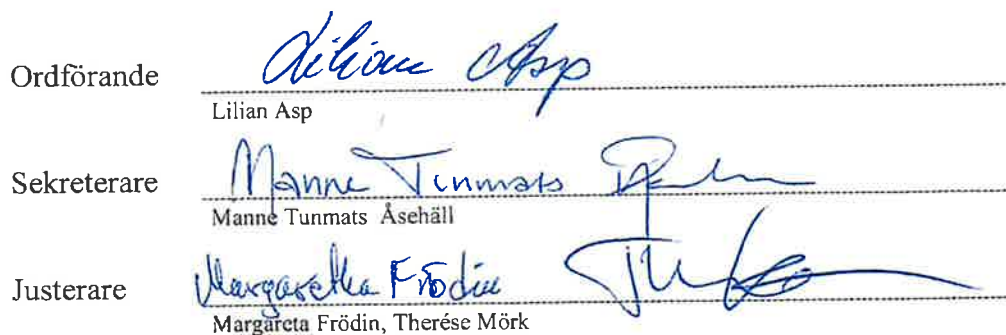 Ordförande Lilian Asp
Lilian Asp
Sekreterare Manne Tunmats
Manne Tunmats Åsehäll
Justerare Margaretha Frödin
Margareta Frödin, Therése Mörk